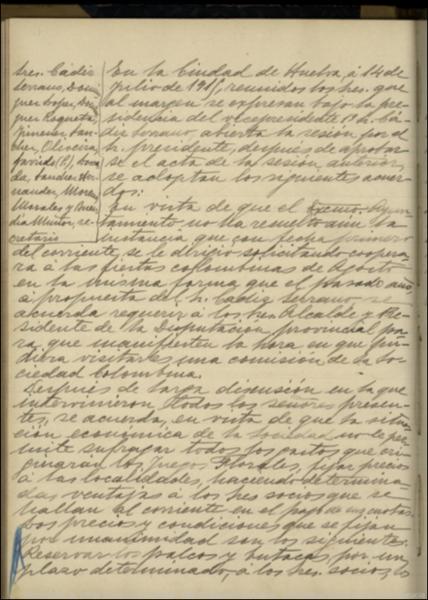 Sres. Cádiz
Serrano, Domín
guez
Jiménez, Sán
chez, Oliveira,
Garrido (P.),
da, Sánchez Her
nández, Moreno,
Morales y
día Muñoz, se
cretario
En la Ciudad de Huelva, á 14 de
Julio de 191, reunidos los Sres. que
al margen se expresan bajo la pre
sidencia del vicepresidente 1º Sr. Cá
diz Serrano, abierta la sesión por el
Sr. presidente, después de aprobar
se el acta de la sesión anterior,
se adoptan los siguientes acuer
dos:
En vista de que el Excmo. Ayun
tamiento no ha resuelto aún la
instancia que con fecha primero
del corriente, se le dirigió solicitando coopera
ra á las fiestas colombinas de Agosto
en la misma forma que el pasado año,
á propuesta del Sr. Cádiz Serrano se
acuerda requerir á los Sres. Alcalde y Pre
sidente de la Diputación provincial pa
ra que manifiesten la hora en que pu
diera visitarles una comisión de la So
ciedad Colombina.
Después de larga discusión en la que
intervinieron todos los señores presen
tes, se acuerda, en vista de que la situa
ción económica de la Sociedad no le per
mite sufragar todos los gastos que ori
ginarán los Juegos Florales, fijar precios
á las localidades, haciendo determina
das ventajas á los Sres. socios que se
hallan al corriente en el pago de sus cuotas.
Los precios y condiciones que se fijan
por unanimidad son los siguientes:
Reservar los palcos y butacas, por un
plazo determinado, á los Sres. socios, los